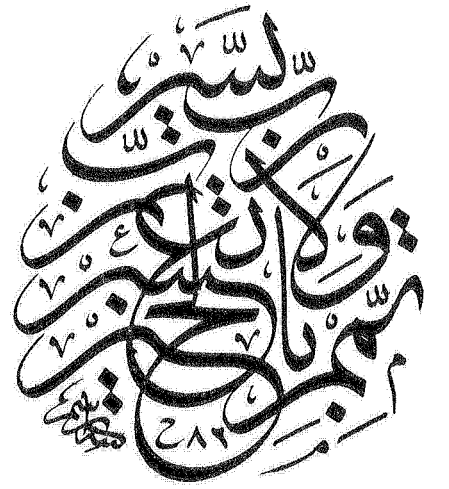 رب يسر
ولا تعسر
رب تمم بالخير